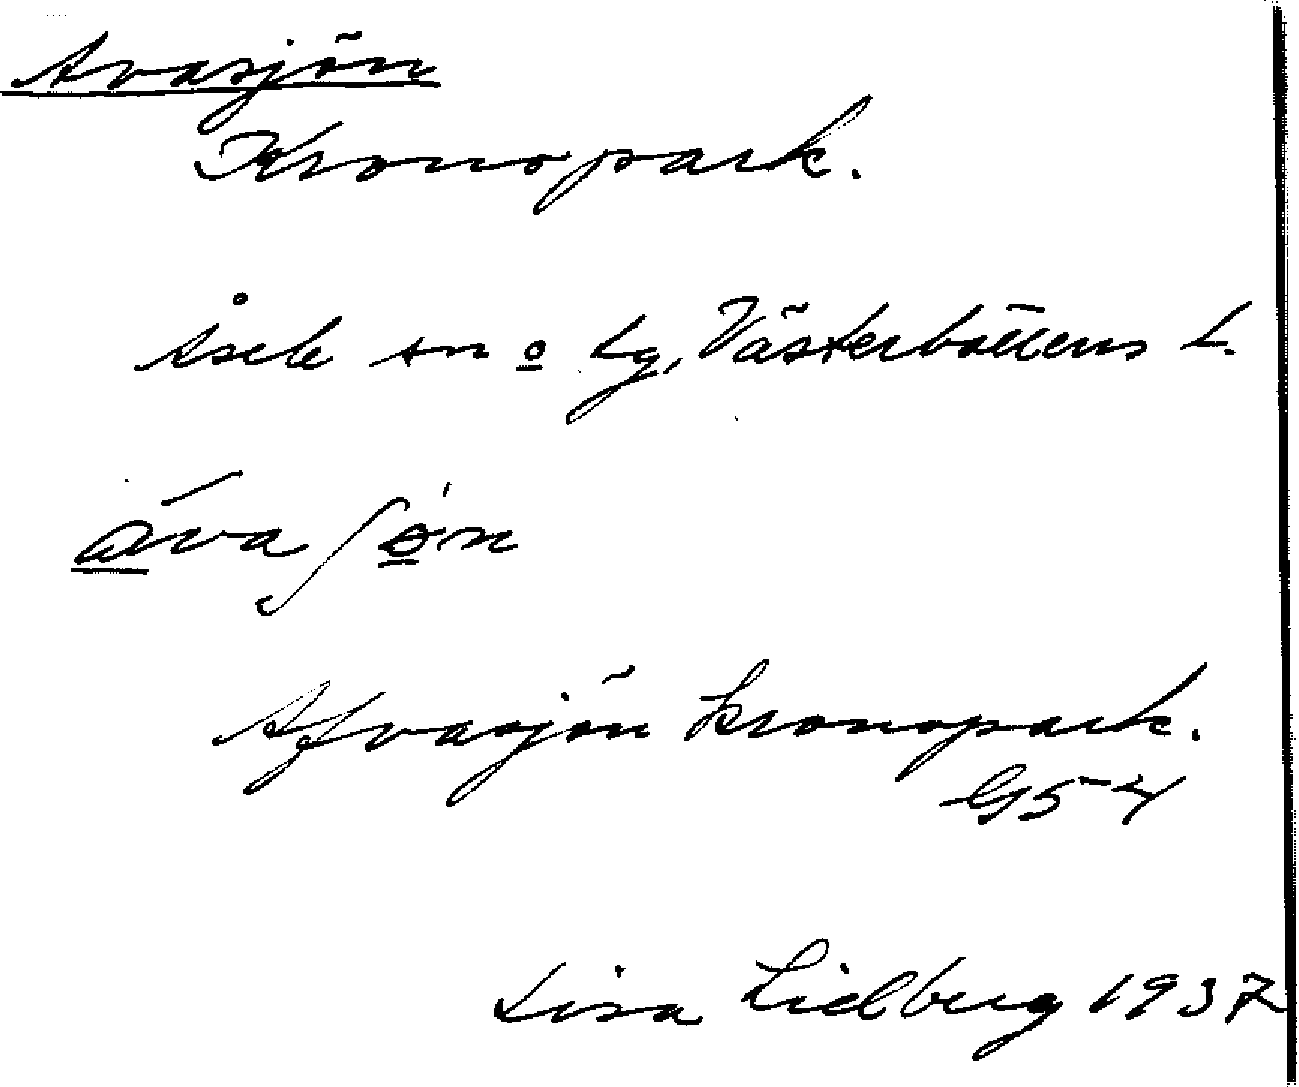 Avasjön
Kronopark.
Åsele sn o lg, Västerbottens L.
áva ʃøn
Afvasjön kronopark.
G54
Lisa Lidberg 1937